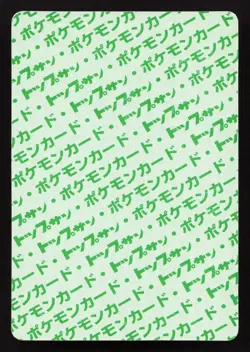 ポケモンカード・トップサン
トップサン・ポケモンカード
ポケモンカード・トップサン
トップサン・ポケモンカード
ポケモンカード・トップサン
トップサン・ポケモンカード
ポケモンカード・トップサン
トップサン・ポケモンカード
ポケモンカード・トップサン
トップサン・ポケモンカード
ポケモンカード・トップサン
トップサン・ポケモンカード